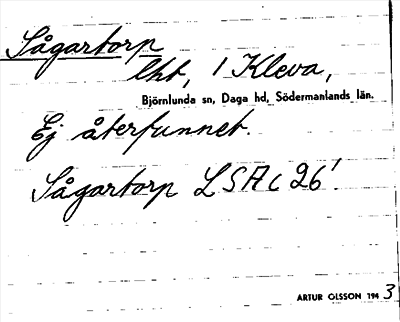 Sågartorp
lht, 1 Kleva,
Björnlunda sn, Daga hd, Södermanlands län.
Ej återfunnet.
Sågartorp LSA c 26'.
ARTUR OLSSON 1943